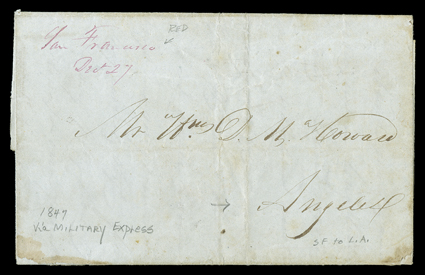 San Francisco RED
Dec 27
Mr Wm D. M. Howard
→ Angeles
1847
Via MILITARY EXPRESS
SF to L.A.